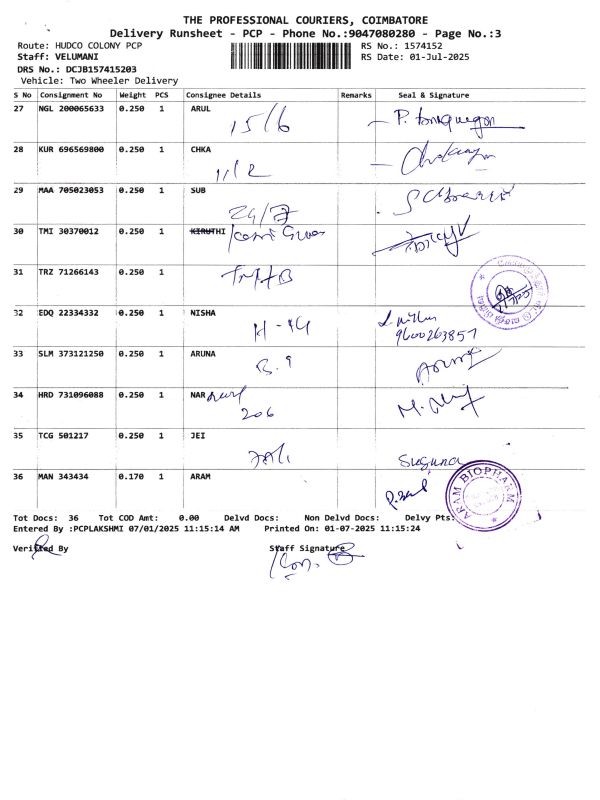 THE PROFESSIONAL COURIERS, COIMBATORE
Delivery Runsheet - PCP - Phone No.:9047080280 - Page No.:3
Route: HUDCO COLONY PCP RS No.: 1574152
Staff: VELUMANI RS Date: 01-Jul-2025
DRS No.: DCJB157415203
Vehicle: Two Wheeler Delivery
S No Consignment No Weight PCS Consignee Details Remarks Seal & Signature
27 NGL 200065633 0.250 1 ARUL
15/6
28 KUR 696569800 0.250 1 CHKA
11/2
29 MAA 705023053 0.250 1 SUB
24/7
30 TMI 30370012 0.250 1 KIRUTHI
31 TRZ 71266143 0.250 1
32 EDQ 22334332 0.250 1 NISHA
H-44
9600263857
33 SLM 373121250 0.250 1 ARUNA
B.9
34 HRD 731096088 0.250 1 NAR
206
35 TCG 501217 0.250 1 JEI
Suguna
36 MAN 343434 0.170 1 ARAM
ARAM BIOPHARM
Tot Docs: 36 Tot COD Amt: 0.00 Delvd Docs: Non Delvd Docs: Delvy Pts:
Entered By :PCPLAKSHMI 07/01/2025 11:15:14 AM Printed On: 01-07-2025 11:15:24
Verified By Staff Signature